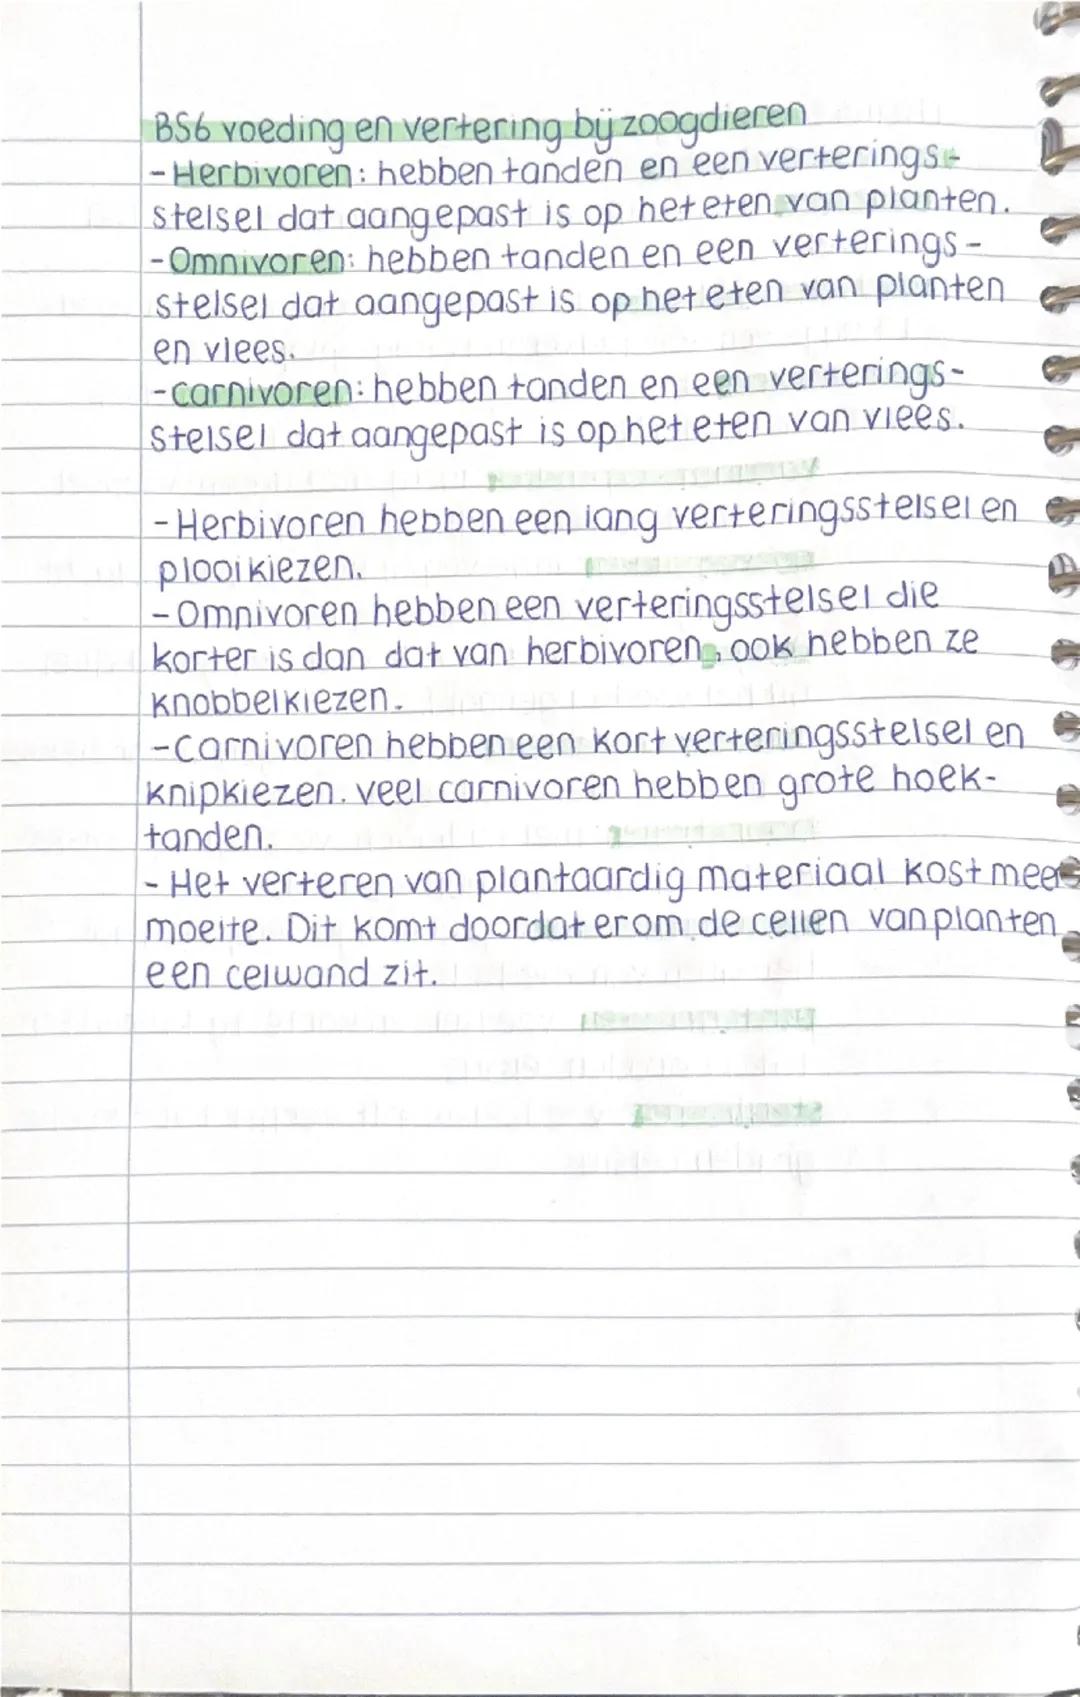 BS6 voeding en vertering bij zoogdieren
- Herbivoren: hebben tanden en een verterings-
stelsel dat aangepast is op het eten van planten.
- Omnivoren: hebben tanden en een verterings-
stelsel dat aangepast is op het eten van planten
en vlees.
- Carnivoren: hebben tanden en een verterings-
stelsel dat aangepast is op het eten van vlees.
- Herbivoren hebben een lang verteringsstelsel en
plooikiezen.
- Omnivoren hebben een verteringsstelsel die
korter is dan dat van herbivoren, ook hebben ze
knobbelkiezen.
- Carnivoren hebben een kort verteringsstelsel en
knipkiezen. veel carnivoren hebben grote hoek-
tanden.
- Het verteren van plantaardig materiaal kost meer
moeite. Dit komt doordat er om de cellen van planten
een celwand zit.